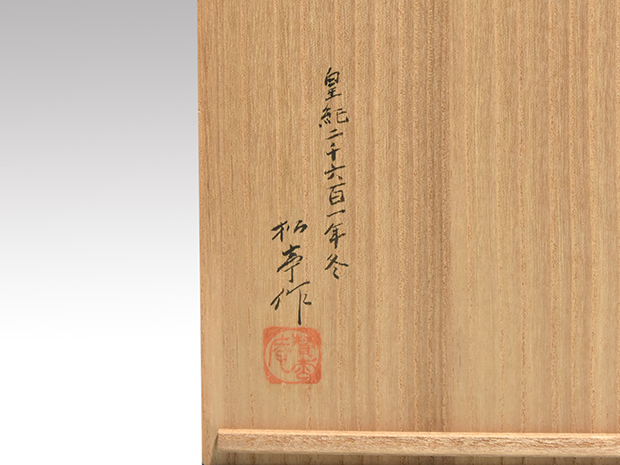 皇紀二千六百一年冬
松亭作